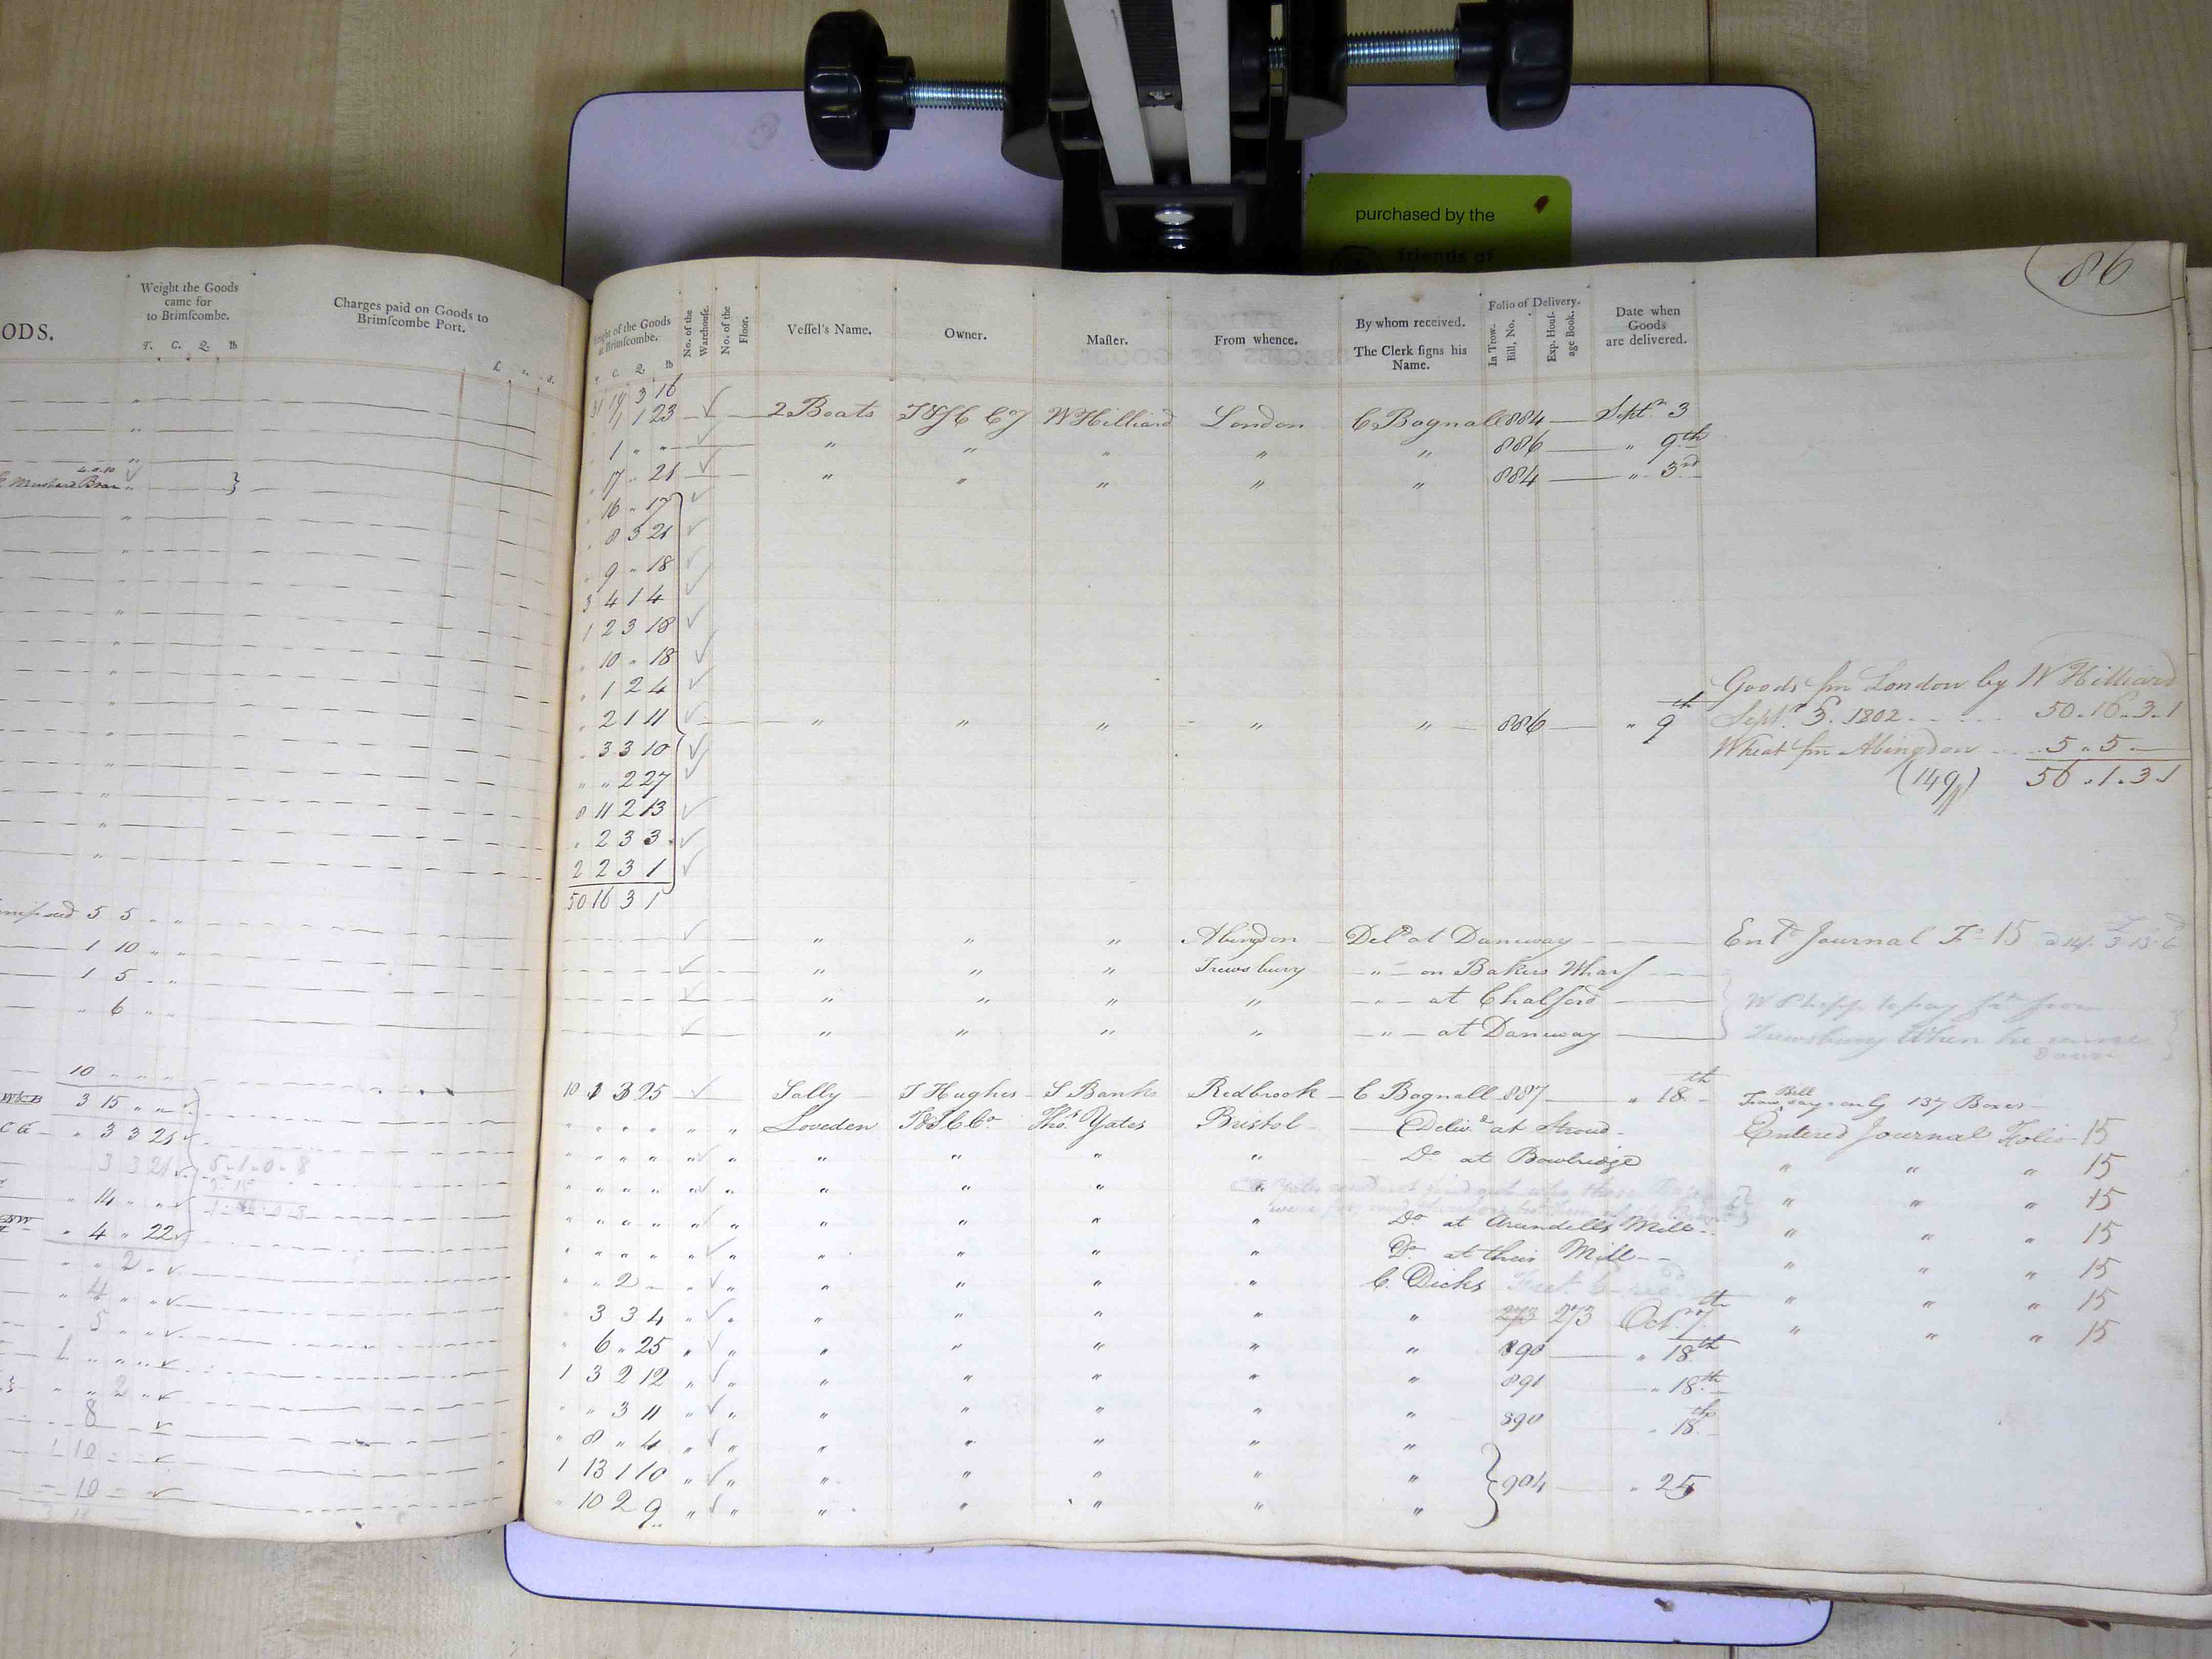 purchased by the
friends of
86
ODS.
Weight the Goods
came for
to Brimſcombe.
T. C. Q. lb
Charges paid on Goods to
Brimſcombe Port.
£ s. d.
Weight of the Goods
at Brimſcombe.
T. C. Q. lb
No. of the
Warehouſe.
No. of the
Floor.
Veſſel's Name.
Owner.
Maſter.
From whence.
By whom received.
The Clerk ſigns his
Name.
Folio of Delivery.
In Trow.
Bill, No.
Exp. Houſ-
age Book.
Date when
Goods
are delivered.
31 19 3 16
" 4 1 23 2 Boats W Hilliard London C Bagnall 884 Septr 3
" 1 " " " " " " " 886 " 9th
" 17 " 21 " " " " " 884 " 3rd
" 16 " 17
" 8 3 21
" 9 " 18
3 4 1 4
1 2 3 18
" 10 " 18
" 1 2 4
" 2 1 11 " " " " " 886 " 9th
" 3 3 10
" " 2 27
8 11 2 13
" 2 3 3
2 2 3 1
50 16 3 1
Goods fm London by W Hilliard
Septr 3. 1802 50.16.3.1
Wheat fm Abingdon 5 " 5
(149) 56.1.3.1
5 5 " " " " " Abingdon Deld at Daneway Entd Journal Fo 15
1 10 " " " " " Trewsbury " on Bakers Wharf
1 5 " " " " " " " at Chalford
" 6 " " " " " " " at Daneway
W Phipps to pay frt from
Trewsbury When he comes
down
10 " " "
3 15 " " 10 1 3 25 Sally J Hughes S Banks Redbrook C Bagnall 887 " 18th Trow Bill says only 137 Boxes
" 3 3 21 Loveden Thos Yates Bristol Delivd at Stroud Entered Journal Folio 15
3 3 21 " " " " Do at Bowbridge " " " 15
" 14 " " " " " " " " " 15
" 4 " 22 " " " " Do at Arundells Mill " " " 15
" " 2 " " " " " Do at their Mill " " " 15
" 4 " " " " 2 " " " " " C. Dicks " " " 15
" 5 " " " 3 3 4 " " " " " 273 273 Octr 7th " " " 15
1 " " " " 6 " 25 " " " " " 890 " 18th
" " 2 " 1 3 2 12 " " " " " 891 " 18th
8 " " 3 11 " " " " " 890 " 18th
1 10 " 8 " 4 " " " " "
10 1 13 1 10 " " " " " 904 " 25
" 10 2 9 " " " " "